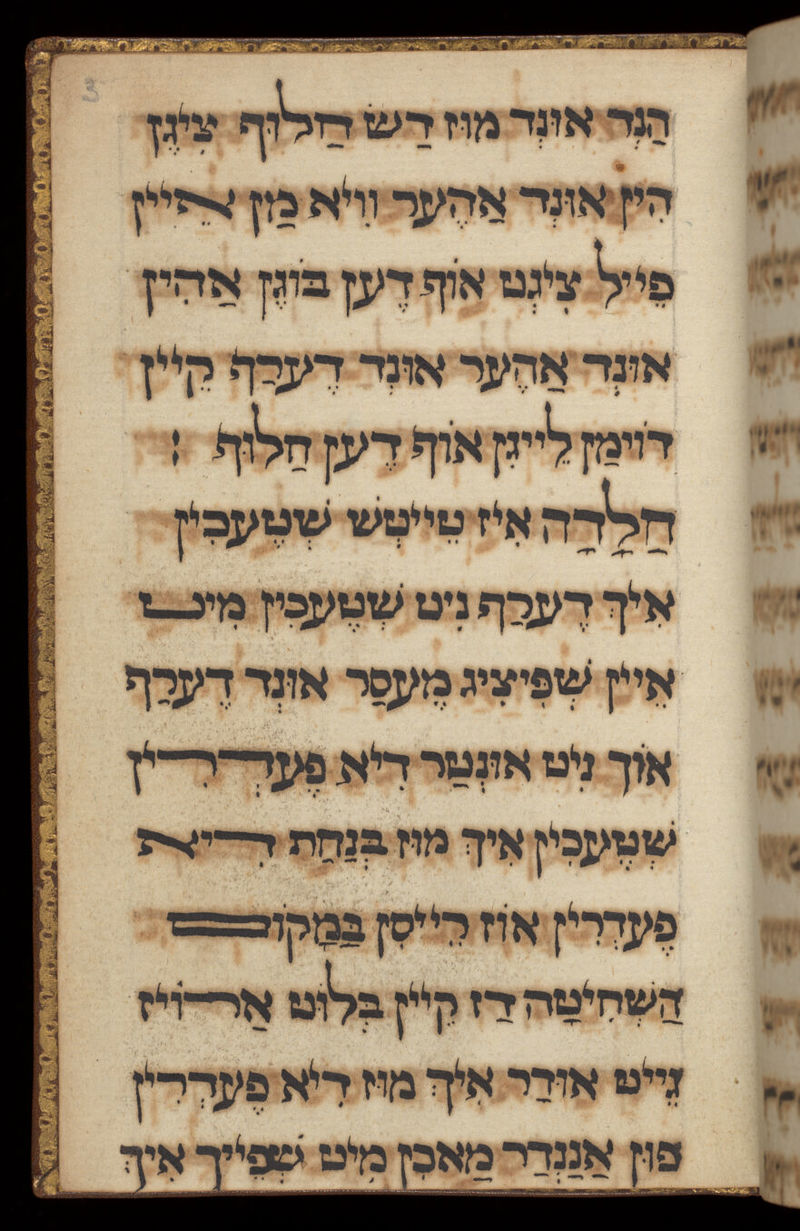 3
הַנְד אוּנְד מוּז דַשׂ חַלוּף צִיגֶן
הִין אוּנְד אַהֶער וִויא מַן אֵיין
פֵייל צִיגְט אוֹף דֶען בּוֹגֶן אַהִין
אוּנְד אַהֶער אוּנְד דֶערַף קֵיין
דוֹימַן לֵייגִן אוֹף דֶען חַלוּף :
חַלָדָה אִיז טֵייטְשׁ שְׁטֶעכִין
אִיךְ דֶערַף נִיט שְׁטֶעכִין מִיט
אֵיין שְׁפִּיצִיג מֶעסַר אוּנְד דֶערַף
אוֹךְ נִיט אוּנְטַר דִיא פֶעדְרִין
שְׁטֶעכִין אִיךְ מוּז בְּנַחַת דִיא
פֶעדְרִין אוֹז רֵייסִן בַּמָקוֹם
הַשְׁחִיטָה דַז קֵיין בְּלוּט אַרוֹיז
גֵייט אוּדַר אִיךְ מוּז דִיא פֶעדְרִין
פוּן אַנַנְדַר מַאכִן מִיט שְׁפֵּייךְ אִיךְ